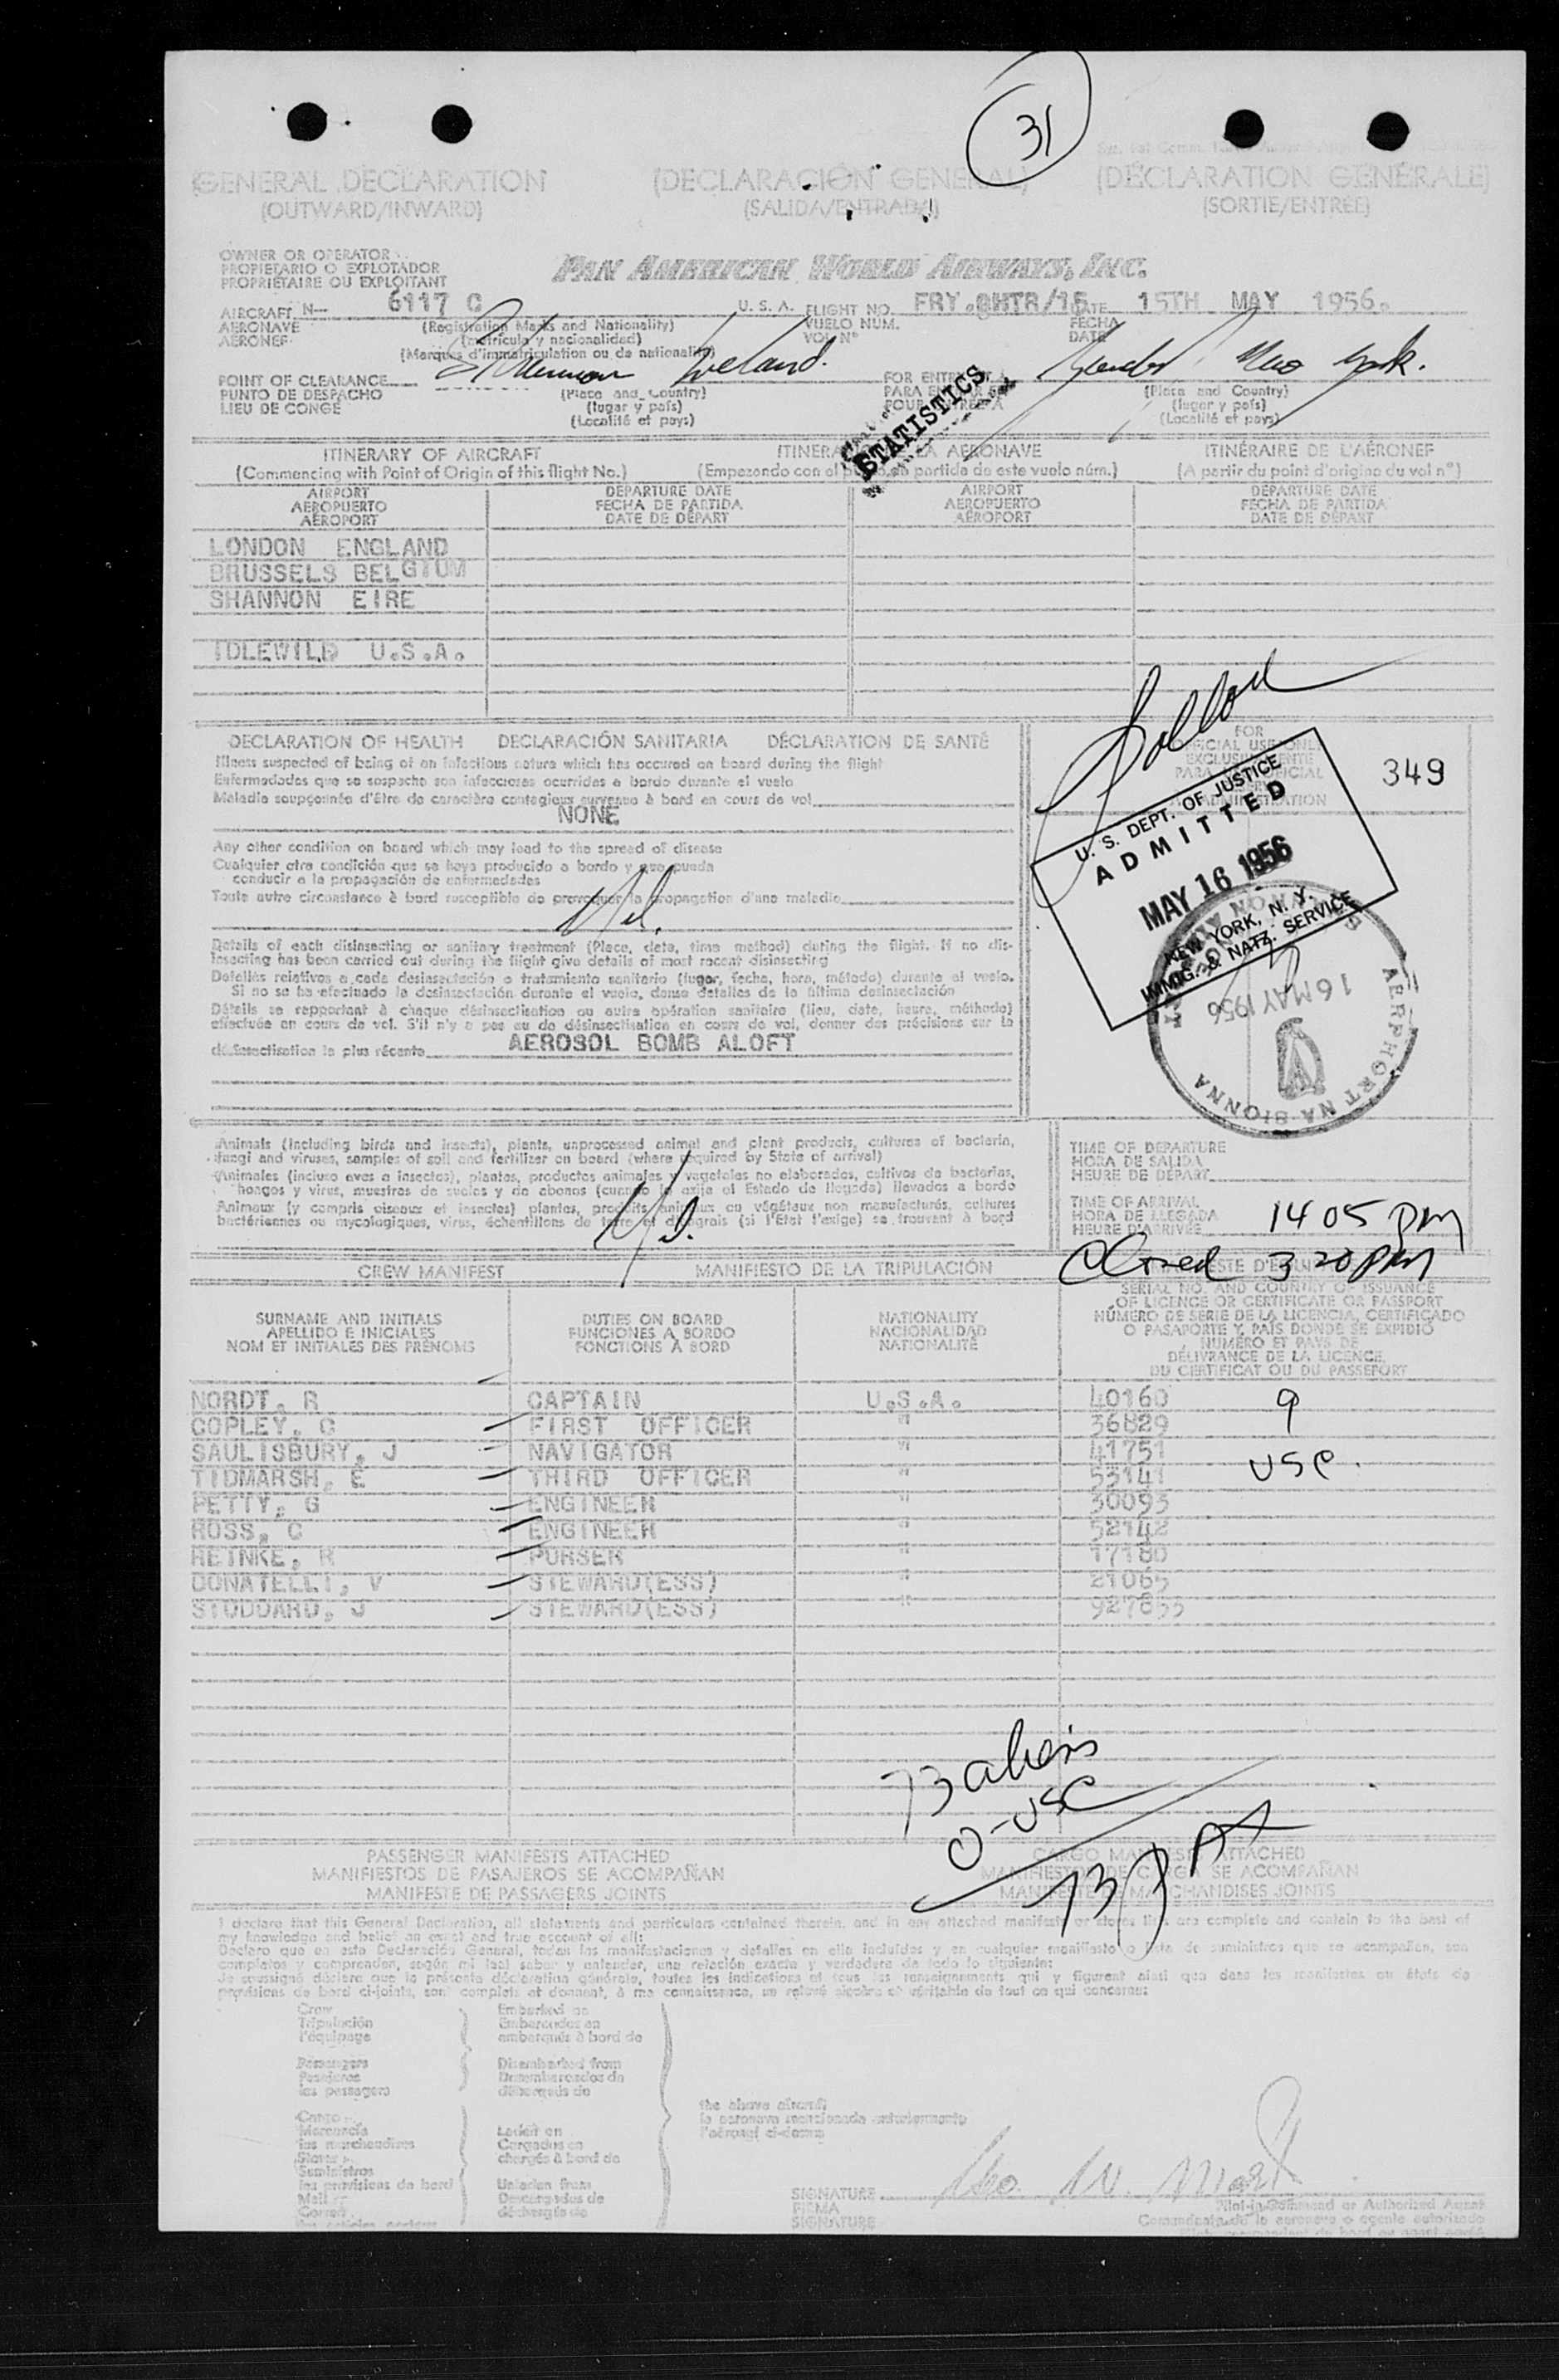 31
GENERAL DECLARATION (DECLARACIÓN GENERAL) (DÉCLARATION GÉNÉRALE)
(OUTWARD/INWARD) (SALIDA/ENTRADA) (SORTIE/ENTRÉE)
OWNER OR OPERATOR
PROPIETARIO O EXPLOTADOR
PROPRIÉTAIRE OU EXPLOITANT
PAN AMERICAN WORLD AIRWAYS, INC.
AIRCRAFT N- 6117 C U. S. A. FLIGHT NO. DATE 15TH MAY 1956.
AERONAVE (Registration Marks and Nationality) VUELO NUM. FECHA
AÉRONEF (matrícula y nacionalidad) VOL N° DATE
(Marques d'immatriculation ou de nationalité)
POINT OF CLEARANCE Shannon Ireland. FOR ENTRY AT New York.
PUNTO DE DESPACHO (Place and Country) PARA (Place and Country)
LIEU DE CONGÉ (lugar y país) POUR (lugar y país)
(Localité et pays) (Localité et pays)
STATISTICS
ITINERARY OF AIRCRAFT LA AERONAVE ITINÉRAIRE DE L'AÉRONEF
(Commencing with Point of Origin of this flight No.) (Empezando con el partida de este vuelo núm.) (A partir du point d'origine du vol n°)
AIRPORT DEPARTURE DATE AIRPORT DEPARTURE DATE
AEROPUERTO FECHA DE PARTIDA AEROPUERTO FECHA DE PARTIDA
AÉROPORT DATE DE DÉPART AÉROPORT DATE DE DÉPART
LONDON ENGLAND
BRUSSELS BELGIUM
SHANNON EIRE
IDLEWILD U.S.A.
DECLARATION OF HEALTH DECLARACIÓN SANITARIA DÉCLARATION DE SANTÉ
Illness suspected of being of an infectious nature which has occured on board during the flight
Enfermedades que se sospecha son infecciosas ocurridas a bordo durante el vuelo
Maladie soupçonnée d'être de caractère contagieux survenue à bord en cours de vol
NONE
Any other condition on board which may lead to the spread of disease
Cualquier otra condición que se haya producido a bordo y que pueda
conducir a la propagación de enfermedades
Toute autre circonstance à bord susceptible de provoquer la propagation d'une maladie
Nil.
Details of each disinsecting or sanitary treatment (Place, date, time method) during the flight. If no dis-
insecting has been carried out during the flight give details of most recent disinsecting
Detalles relativos a cada desinsectación o tratamiento sanitario (lugar, fecha, hora, método) durante el vuelo.
Si no se ha efectuado la desinsectación durante el vuelo, dense detalles de la última desinsectación
Détails se rapportant à chaque désinsectisation ou autre opération sanitaire (lieu, date, heure, méthode)
effectuée en cours de vol. S'il n'y a pas eu de désinsectisation en cours de vol, donner des précisions sur la
désinsectisation la plus récente AEROSOL BOMB ALOFT
FOR
OFFICIAL USE ONLY
349
U. S. DEPT. OF JUSTICE
ADMITTED
MAY 16 1956
NEW YORK, N. Y.
IMMIG. & NATZ. SERVICE
16 MAY 1956
AERPHORT NA SIONNA
Animals (including birds and insects), plants, unprocessed animal and plant products, cultures of bacteria,
fungi and viruses, samples of soil and fertilizer on board (where required by State of arrival)
Animales (incluso aves e insectos), plantas, productos animales y vegetales no elaborados, cultivos de bacterias,
hongos y virus, muestras de suelos y de abonos (cuando lo exija el Estado de llegada) llevados a bordo
Animaux (y compris oiseaux et insectes) plantes, produits animaux ou végétaux non manufacturés, cultures
bactériennes ou mycologiques, virus, échantillons de terre et d'engrais (si l'Etat l'exige) se trouvant à bord
Nil.
TIME OF DEPARTURE
HORA DE SALIDA
HEURE DE DÉPART
TIME OF ARRIVAL
HORA DE LLEGADA
HEURE D'ARRIVÉE 1405 PM
Closed 320 PM
CREW MANIFEST MANIFIESTO DE LA TRIPULACIÓN
SURNAME AND INITIALS DUTIES ON BOARD NATIONALITY SERIAL NO. AND COUNTRY OF ISSUANCE
APELLIDO E INICIALES FUNCIONES A BORDO NACIONALIDAD OF LICENCE OR CERTIFICATE OR PASSPORT
NOM ET INITIALES DES PRÉNOMS FONCTIONS À BORD NATIONALITÉ NÚMERO DE SERIE DE LA LICENCIA, CERTIFICADO
O PASAPORTE Y PAÍS DONDE SE EXPIDIÓ
NUMÉRO ET PAYS DE
DÉLIVRANCE DE LA LICENCE,
DU CERTIFICAT OU DU PASSEPORT
NORDT, R CAPTAIN U.S.A. 40160 9
COPLEY, C FIRST OFFICER " 36829
SAULISBURY, J NAVIGATOR " 41751 USC.
TIDMARSH, E THIRD OFFICER " 53141
PETTY, G ENGINEER " 30093
ROSS, C ENGINEER " 52142
HEINKE, R PURSER " 17180
DONATELLI, V STEWARD(ESS) " 21065
STODDARD, J STEWARD(ESS) " 927855
73 aliens
0-USC
73
PASSENGER MANIFESTS ATTACHED CARGO MANIFESTS ATTACHED
MANIFIESTOS DE PASAJEROS SE ACOMPAÑAN MANIFIESTOS DE CARGA SE ACOMPAÑAN
MANIFESTE DE PASSAGERS JOINTS MANIFESTE DE MARCHANDISES JOINTS
I declare that this General Declaration, all statements and particulars contained therein, and in any attached manifests or stores lists are complete and contain to the best of
my knowledge and belief an exact and true account of all:
Declaro que en esta Declaración General, todas las manifestaciones y detalles en ella incluidos y en cualquier manifiesto o lista de suministros que se acompañen, son
completos y comprenden, según mi leal saber y entender, una relación exacta y verdadera de todo lo siguiente:
Je soussigné déclare que la présente déclaration générale, toutes les indications et tous les renseignements qui y figurent ainsi que dans les manifestes ou états de
provisions de bord ci-joints, sont complets et donnent, à ma connaissance, un relevé sincère et véritable de tout ce qui concerne:
Crew Embarked on
Tripulación Embarcados en
l'équipage embarqués à bord de
Passengers Disembarked from
Pasajeros Desembarcados de
les passagers débarqués de
Cargo
Mercancía Laden on
les marchandises Cargados en
Stores chargés à bord de
Suministros
les provisions de bord Unladen from
Mail Descargados de
Correo déchargés de
the above aircraft
la aeronave mencionada anteriormente
l'aéronef ci-dessus
SIGNATURE
FIRMA
SIGNATURE
Pilot-in-Command or Authorized Agent
Comandante de la aeronave o agente autorizado